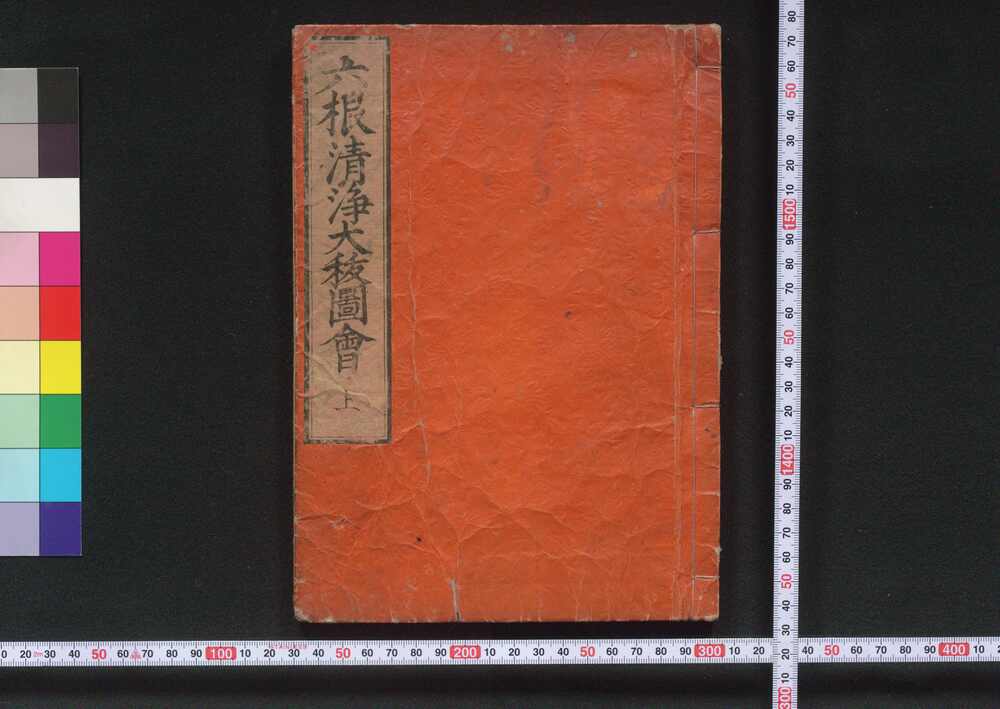 六根清浄大祓圖會 上
80 70 60 50 40 30 20 10 1500 90 80 70 60 50 40 30 20 10 1400 90 80 70 60 50 40 30 20 10 300
0 20 30 2m 40 50 60 70 80 90 100 10 20 30 40 50 60 70 80 90 200 10 20 30 40 50 60 70 80 90 300 10 20 40 50 60 70 80 90 400 10